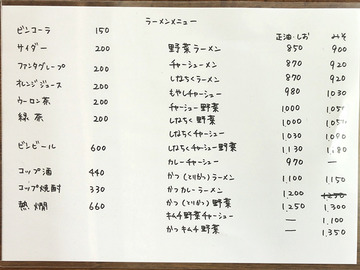 ラーメンメニュー
正油・しお みそ
ビンコーラ 150
サイダー 200
ファンタグレープ 200
オレンジジュース 200
ウーロン茶 200
緑茶 200
ビンビール 600
コップ酒 440
コップ焼酎 330
熱燗 660
野菜ラーメン 850 900
チャーシューメン 870 920
しなちくラーメン 870 920
もやしチャーシュー 980 1030
チャーシュー野菜 1000 1050
しなちく野菜 1000 1050
しなちくチャーシュー 1030 1090
しなちくチャーシュー野菜 1.130 1.180
カレーチャーシュー 970 —
かつ(とりかつ)ラーメン 1.100 1150
かつカレーラーメン 1.200
かつ(とりかつ)野菜 1.250 1.300
キムチ野菜チャーシュー — 1.100
かつキムチ野菜 — 1.350